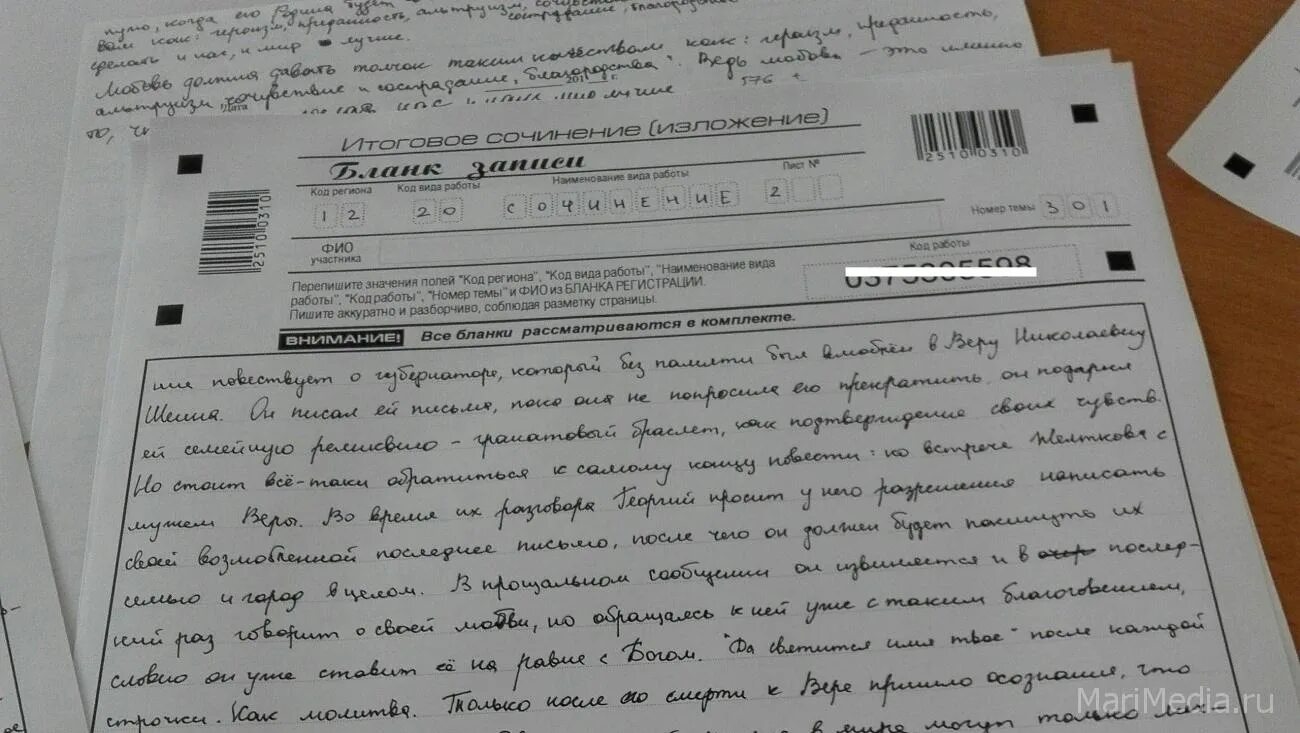 вам как: героизм, преданность, альтруизм,
сделать и нас, и мир лучше.
Любовь должна давать толчок таким качествам как: героизм, преданность,
альтруизм, сочувствие и сострадание, благородства". Ведь любовь - это именно
то,
576
Итоговое сочинение (изложение)
Бланк записи
Код региона Код вида работы Наименование вида работы Лист №
12 20 СОЧИНЕНИЕ 2
Номер темы 301
25100310
25100310
ФИО участника
Код работы
Перепишите значения полей "Код региона", "Код вида работы", "Наименование вида
работы", "Код работы", "Номер темы" и ФИО из БЛАНКА РЕГИСТРАЦИИ.
Пишите аккуратно и разборчиво, соблюдая разметку страницы.
ВНИМАНИЕ! Все бланки рассматриваются в комплекте.
повествует о губернаторе, который без памяти был влюблён в Веру Николаевну
Шеина. Он писал ей письма, пока она не попросила его прекратить, он подарил
ей семейную реликвию - гранатовый браслет, как подтверждение своих чувств.
Но стоит всё-таки обратиться к самому концу повести: ко встрече Желткова с
мужем Веры. Во время их разговора Георгий просит у него разрешения написать
своей возлюбленной последнее письмо, после чего он должен будет покинуть их
семью и город в целом. В прощальном сообщении он извиняется и в послед-
ний раз говорит о своей любви, но обращаясь к ней уже с таким благоговением,
словно он уже ставит её на равне с Богом. "Да святится имя твое" после каждой
строчки. Как молитва. Только после его смерти к Вере пришло осознание, что
в мире могут только
MariMedia.ru